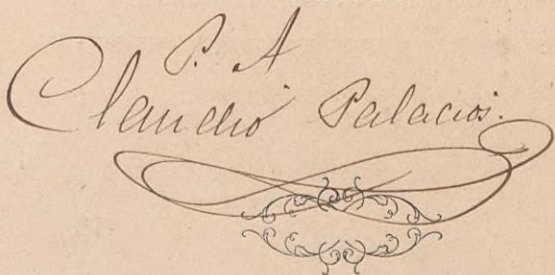 P. A
Claudio Palacios.